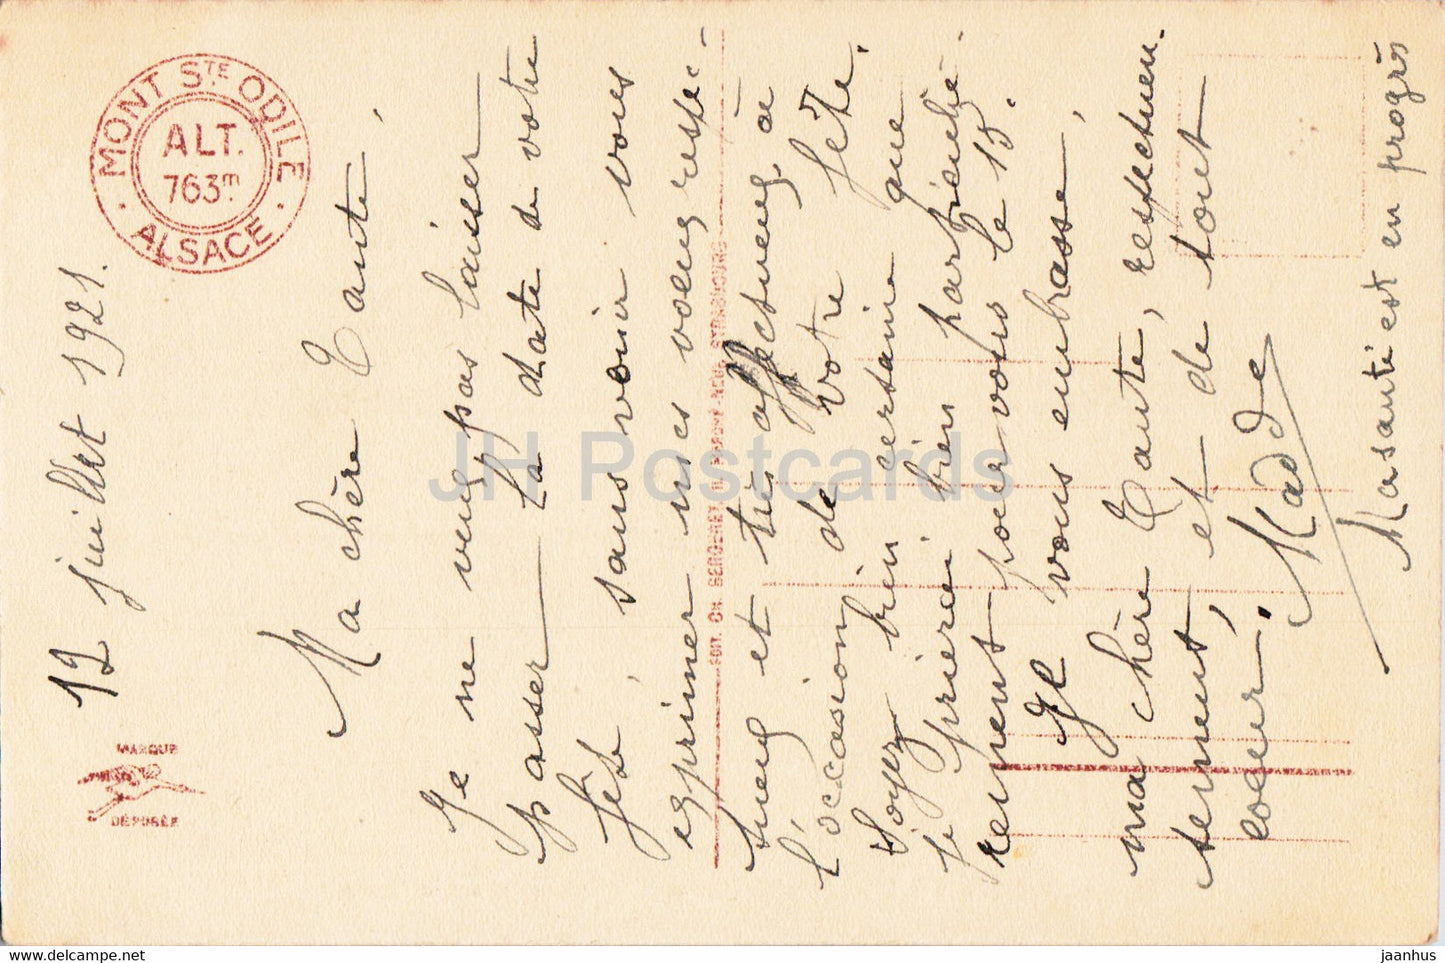 12 juillet 1921.
Ma chère Tante,
Je ne veux pas laisser
passer la date de votre
fête, sans venir vous
exprimer mes voeux respec-
tueux et très affectueux à
l'occasion de votre fête.
Soyez bien certaine que
je prierai bien particuliè-
rement pour vous le 15.
Je vous embrasse,
ma chère Tante, respectueu-
sement, et de tout
coeur.
Madde
Ma santé est en progrès
MONT STE ODILE
ALT.
763m
ALSACE
MARQUE
DÉPOSÉE
EDIT. CH. BERGERET STRASBOURG
JH Postcards
www.delcampe.net
jaanhus